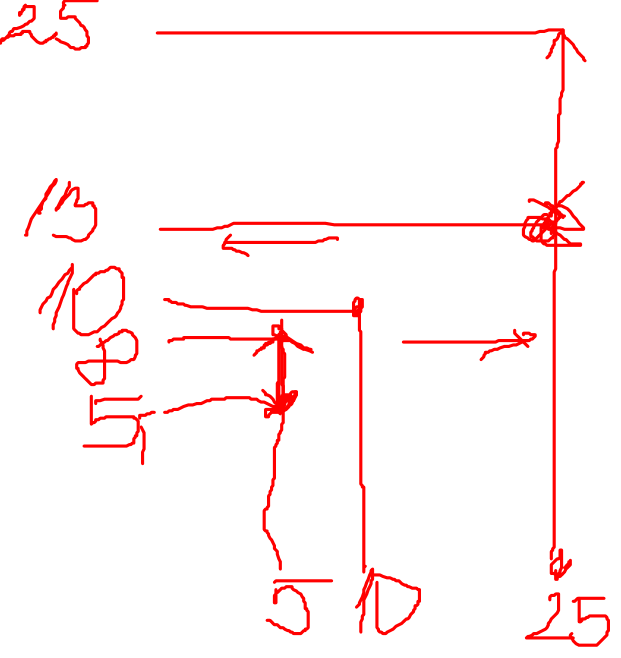 25
13
10
8
5
5 10 25